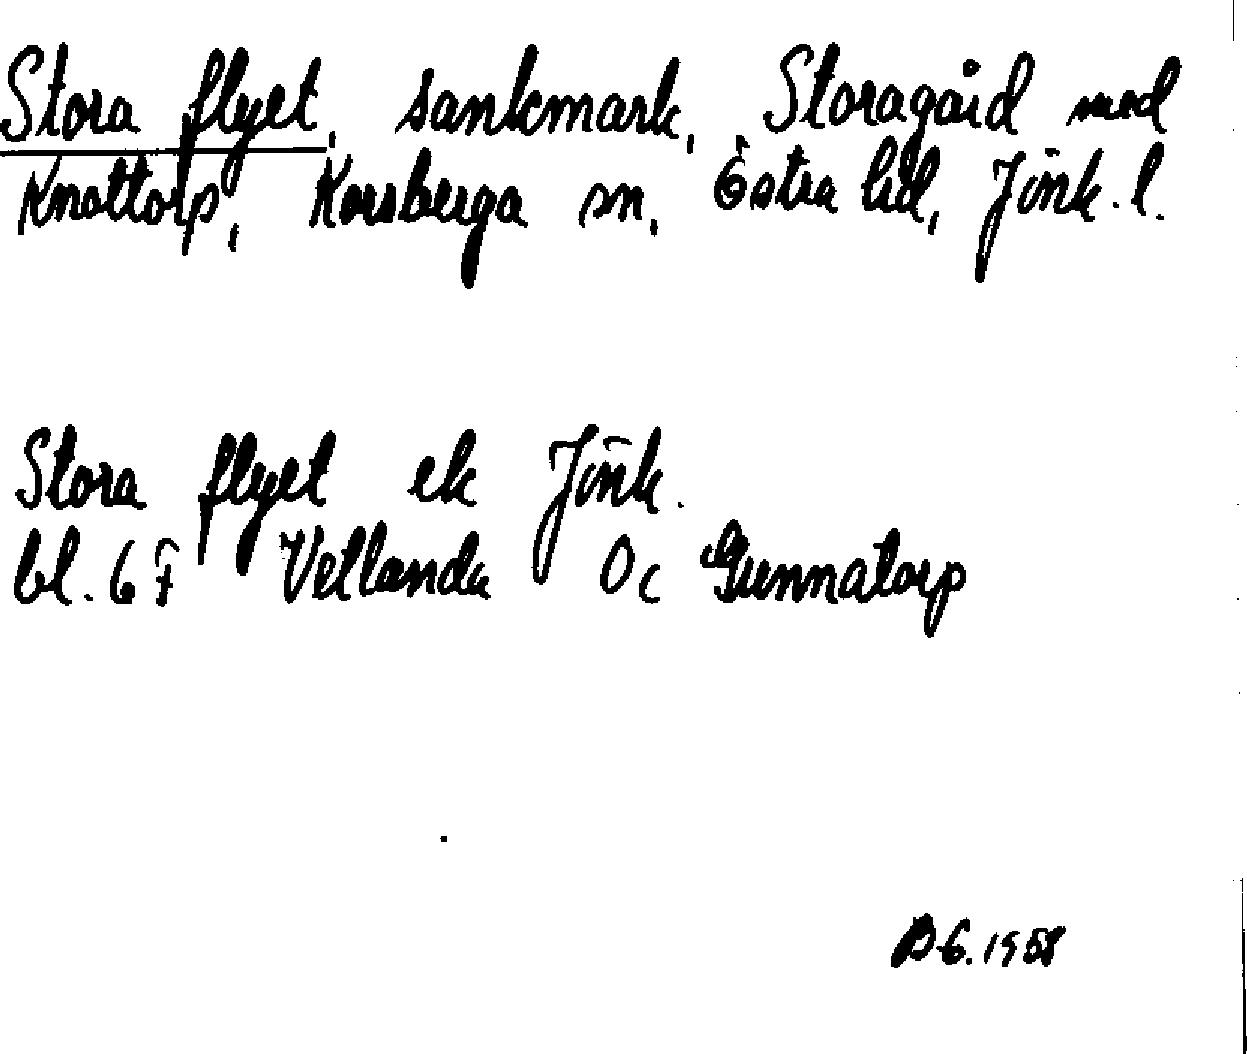 Stora flyet, sankmark, Storagård med
Knattorp, Korsberga sn, Östra hd, Jönk. l.
Stora flyet ek Jönk.
bl. 67 Vetlanda 0c Gunnatorp
BG. 1958